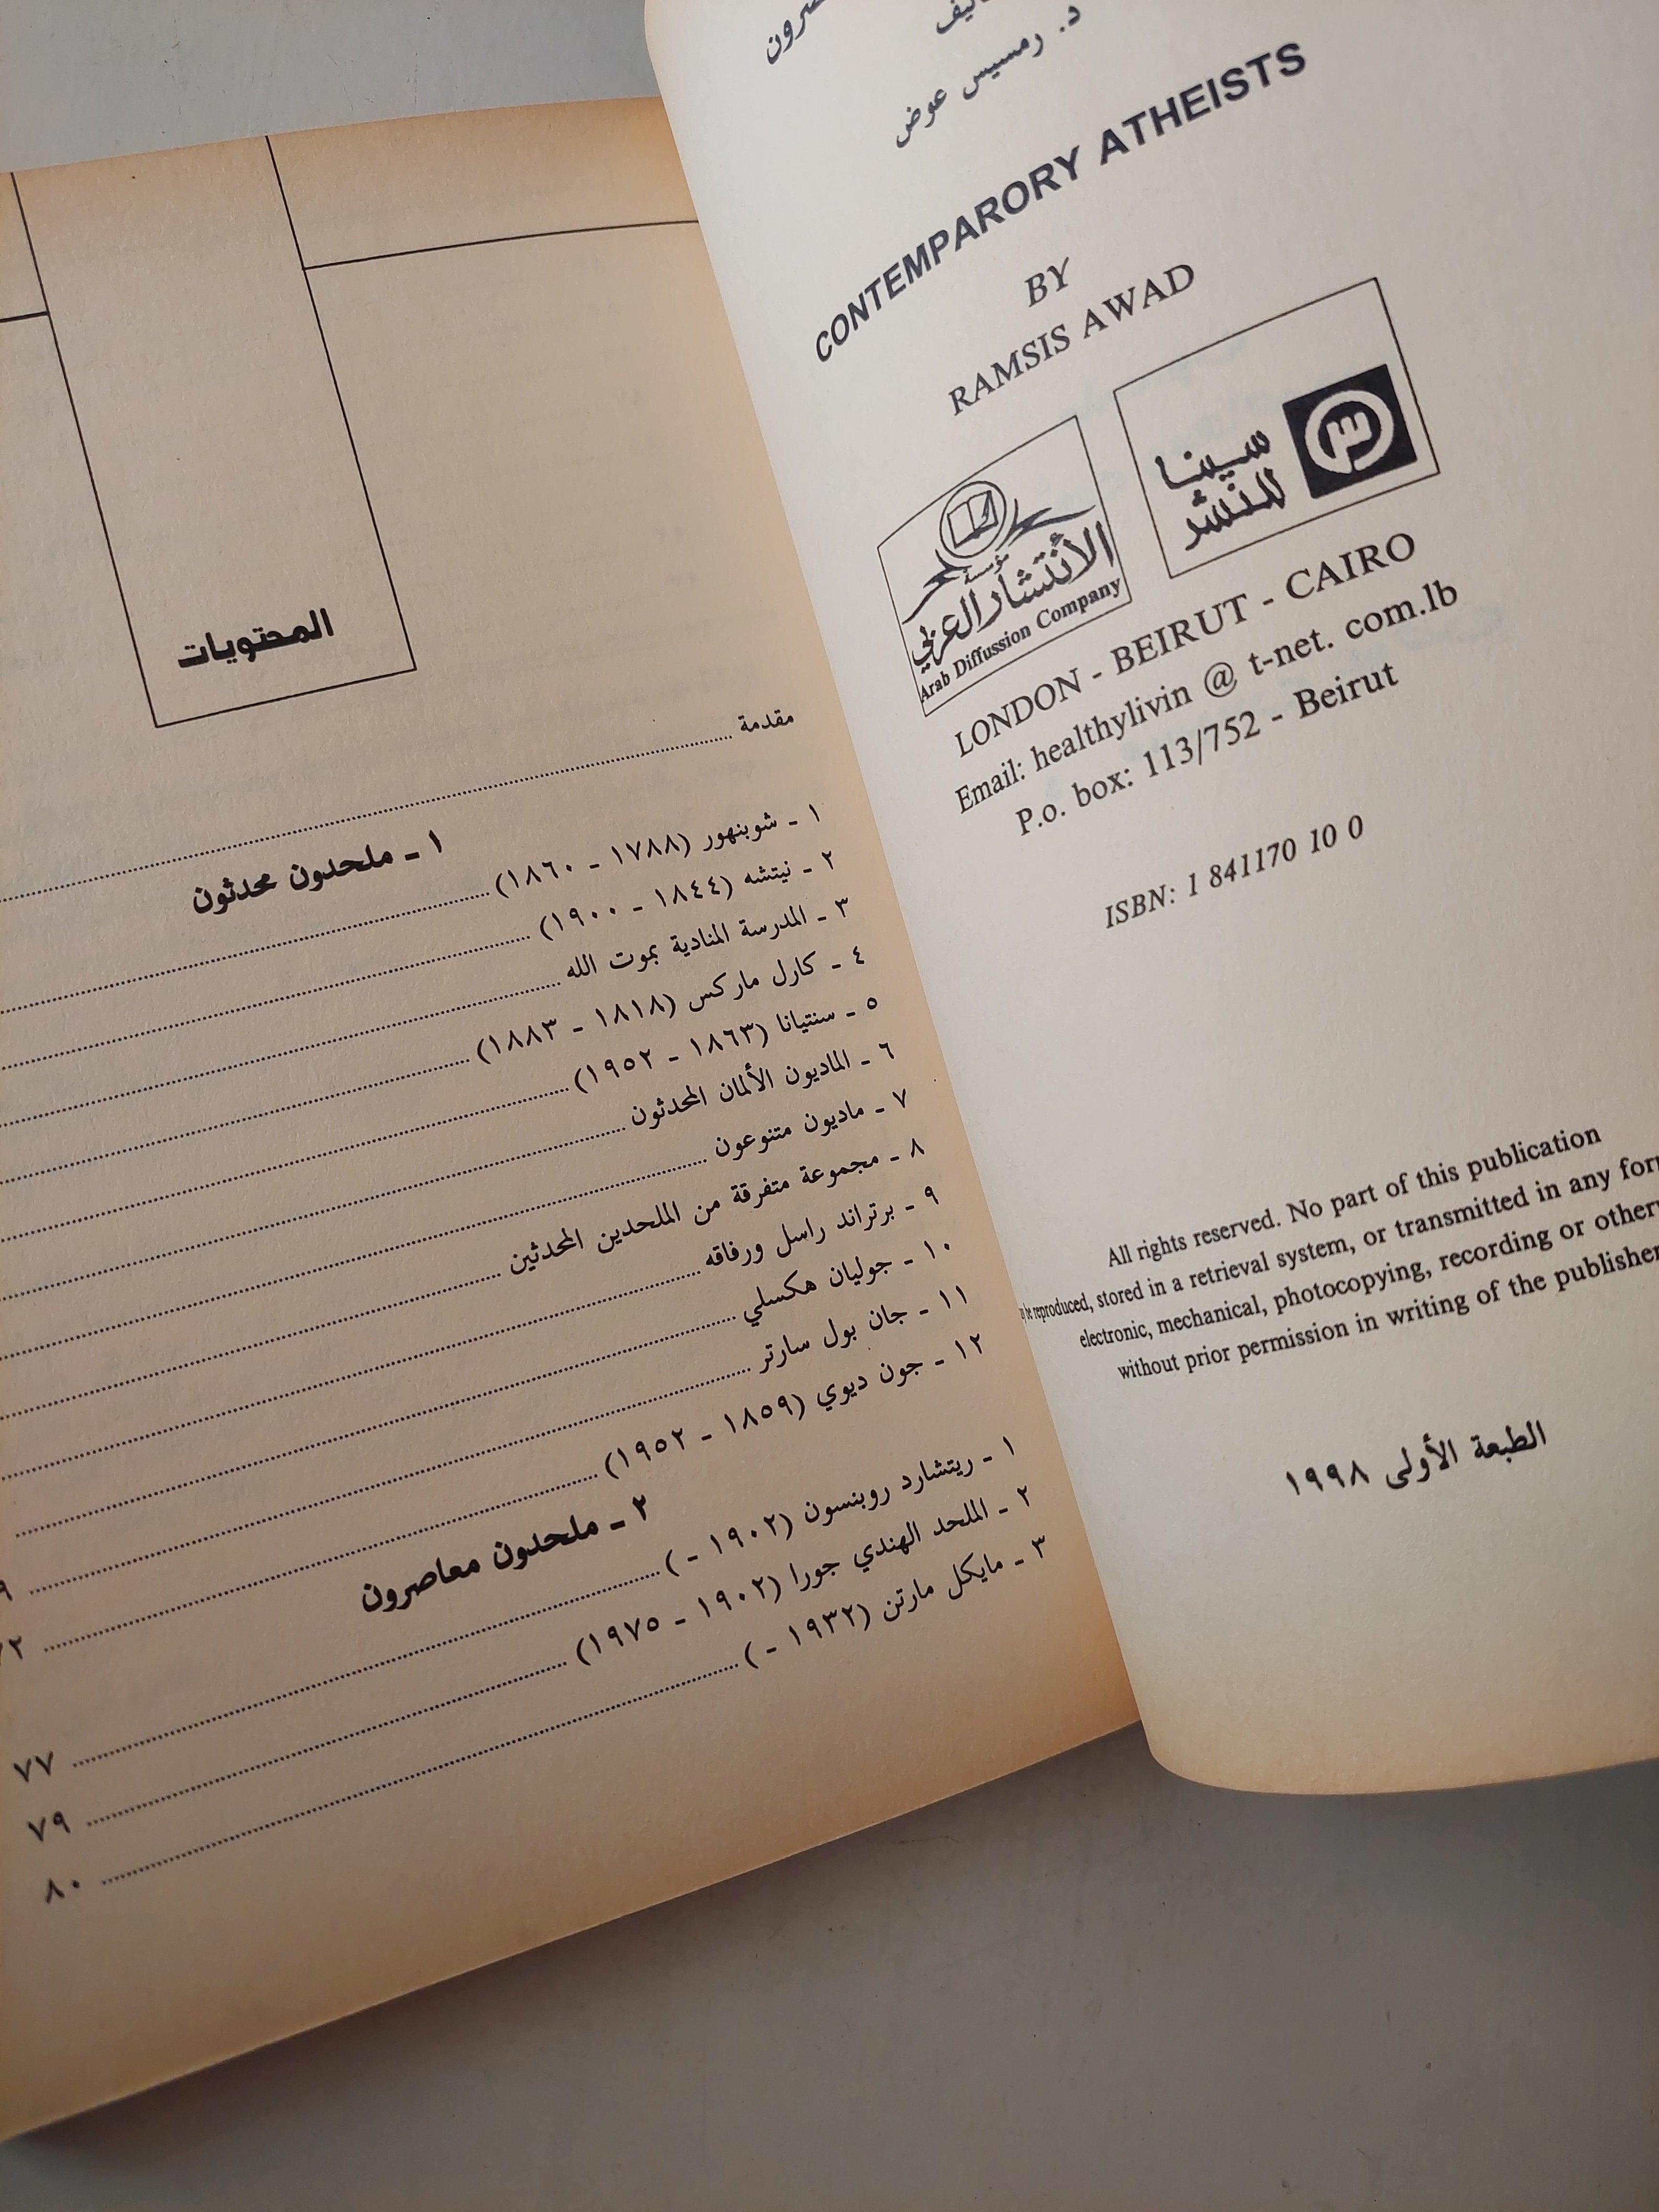 د. رمسيس عوض
CONTEMPARORY ATHEISTS
BY
RAMSIS AWAD
سينا
للنشر
مؤسسة
الأنتشار العربي
Arab Diffussion Company
LONDON - BEIRUT - CAIRO
Email: healthylivin @ t-net. com.lb
P.o. box: 113/752 - Beirut
ISBN: 1 841170 10 0
All rights reserved. No part of this publication
be reproduced, stored in a retrieval system, or transmitted in any
electronic, mechanical, photocopying, recording or
without prior permission in writing of the publisher
الطبعة الأولى ١٩٩٨
المحتويات
مقدمة
١ ـ ملحدون محدثون
١ ـ شوبنهور (١٧٨٨ ـ ١٨٦٠)
٢ ـ نيتشه (١٨٤٤ ـ ١٩٠٠)
٣ ـ المدرسة المنادية بموت الله
٤ ـ كارل ماركس (١٨١٨ ـ ١٨٨٣)
٥ ـ سنتيانا (١٨٦٣ ـ ١٩٥٢)
٦ ـ الماديون الألمان المحدثون
٧ ـ ماديون متنوعون
٨ ـ مجموعة متفرقة من الملحدين المحدثين
٩ ـ برتراند راسل ورفاقه
١٠ ـ جوليان هكسلي
١١ ـ جان بول سارتر
١٢ ـ جون ديوي (١٨٥٩ ـ ١٩٥٢)
٢ ـ ملحدون معاصرون
١ ـ ريتشارد روبنسون (١٩٠٢ ـ ) ٧٧
٢ ـ الملحد الهندي جورا (١٩٠٢ ـ ١٩٧٥) ٧٩
٣ ـ مايكل مارتن (١٩٣٢ ـ ) ٨٠